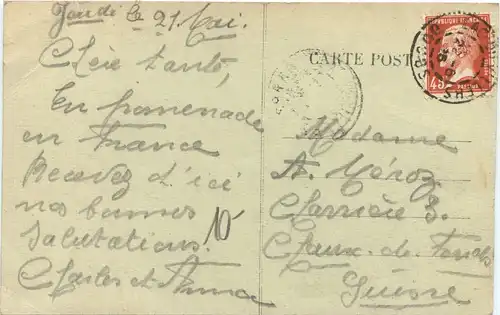 Jeudi le 21 Mai.
Chère tante,
En promenade
en France
Recevez d'ici
nos bonnes
salutations.
Charles et Anna
10
CARTE POST
REPUBLIQUE FRANÇAISE
45
POSTES
Madame
A. Méroz
Charrière 3.
Chaux-de-Fonds
Suisse